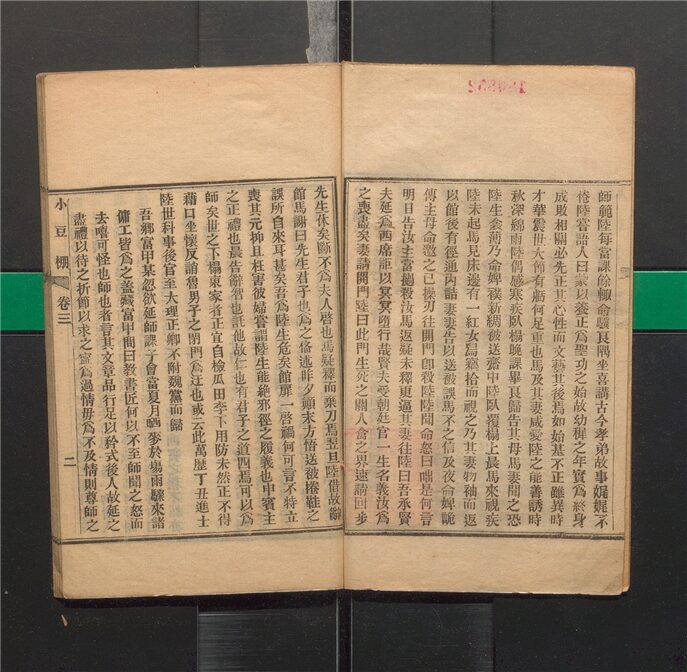 師範陸每當課餘輒命驥良隅坐喜講古今孝弟故事娓娓不
倦陸嘗語人曰蒙以養正爲聖功之始故幼稚之年實爲終身
成敗相關必先正其心性而文藝其後焉如始基不正雖異時
才華震世大節有虧何足重也馬及其妻咸愛陸之能善誘時
秋深綿雨陸偶感寒疾臥榻
課畢良歸告其母馬妻聞之恐
陸生衾薄乃命婢
新綢被送齋中陸臥覆榻上晨馬來視疾
陸未起馬見床邊有一紅女舄竊拾而視之乃其妻物袖而返
以館後有徑通內詰妻妻告以送被誤馬不之信及夜命婢詭
傳主母命邀之己操刃往開門卽殺陸陸聞命怒曰咄是何言
明日告汝主當撻殺汝馬返疑未釋更逼其妻往陸曰吾承賢
夫延爲西席詎以冥冥墮行哉賢夫受朝廷官一生名義汝爲
之喪盡矣妻請開門陸曰此門生死之關人禽之界速請回步
先生休矣斷不爲夫人啓也馬疑釋而棄刀焉翌旦陸借故辭
館馬謝曰先生君子也爲之備述昨夕顚末方悟送被捲鞋之
誤所自來耳甚矣吾爲陸生危矣館扉一啓禍何可言不特立
喪其元抑且枉害彼婦嘗謂陸生能絕邪徑之履義也申賓主
之正禮也晨告辭智也託他故仁也有君子之道四焉可以爲
師矣世之下榻東家者正宜自檢瓜田李下用防未然正不得
藉口坐懷反誚魯男子之閉門爲迂也或云此萬歷丁丑進士
陸世科事後官至大理正卿不附魏黨而歸
吾鄉富甲某忽欲延師課子會當夏月晒麥於場雨驟來諸
傭工皆爲之蓋藏富甲問曰教書匠何以不至師聞之怒而
去嘻可怪也師也者言其文章品行足以矜式後人故延之
盡禮以待之折節以求之寗爲過情毋爲不及情則尊師之
小豆棚
卷三
二